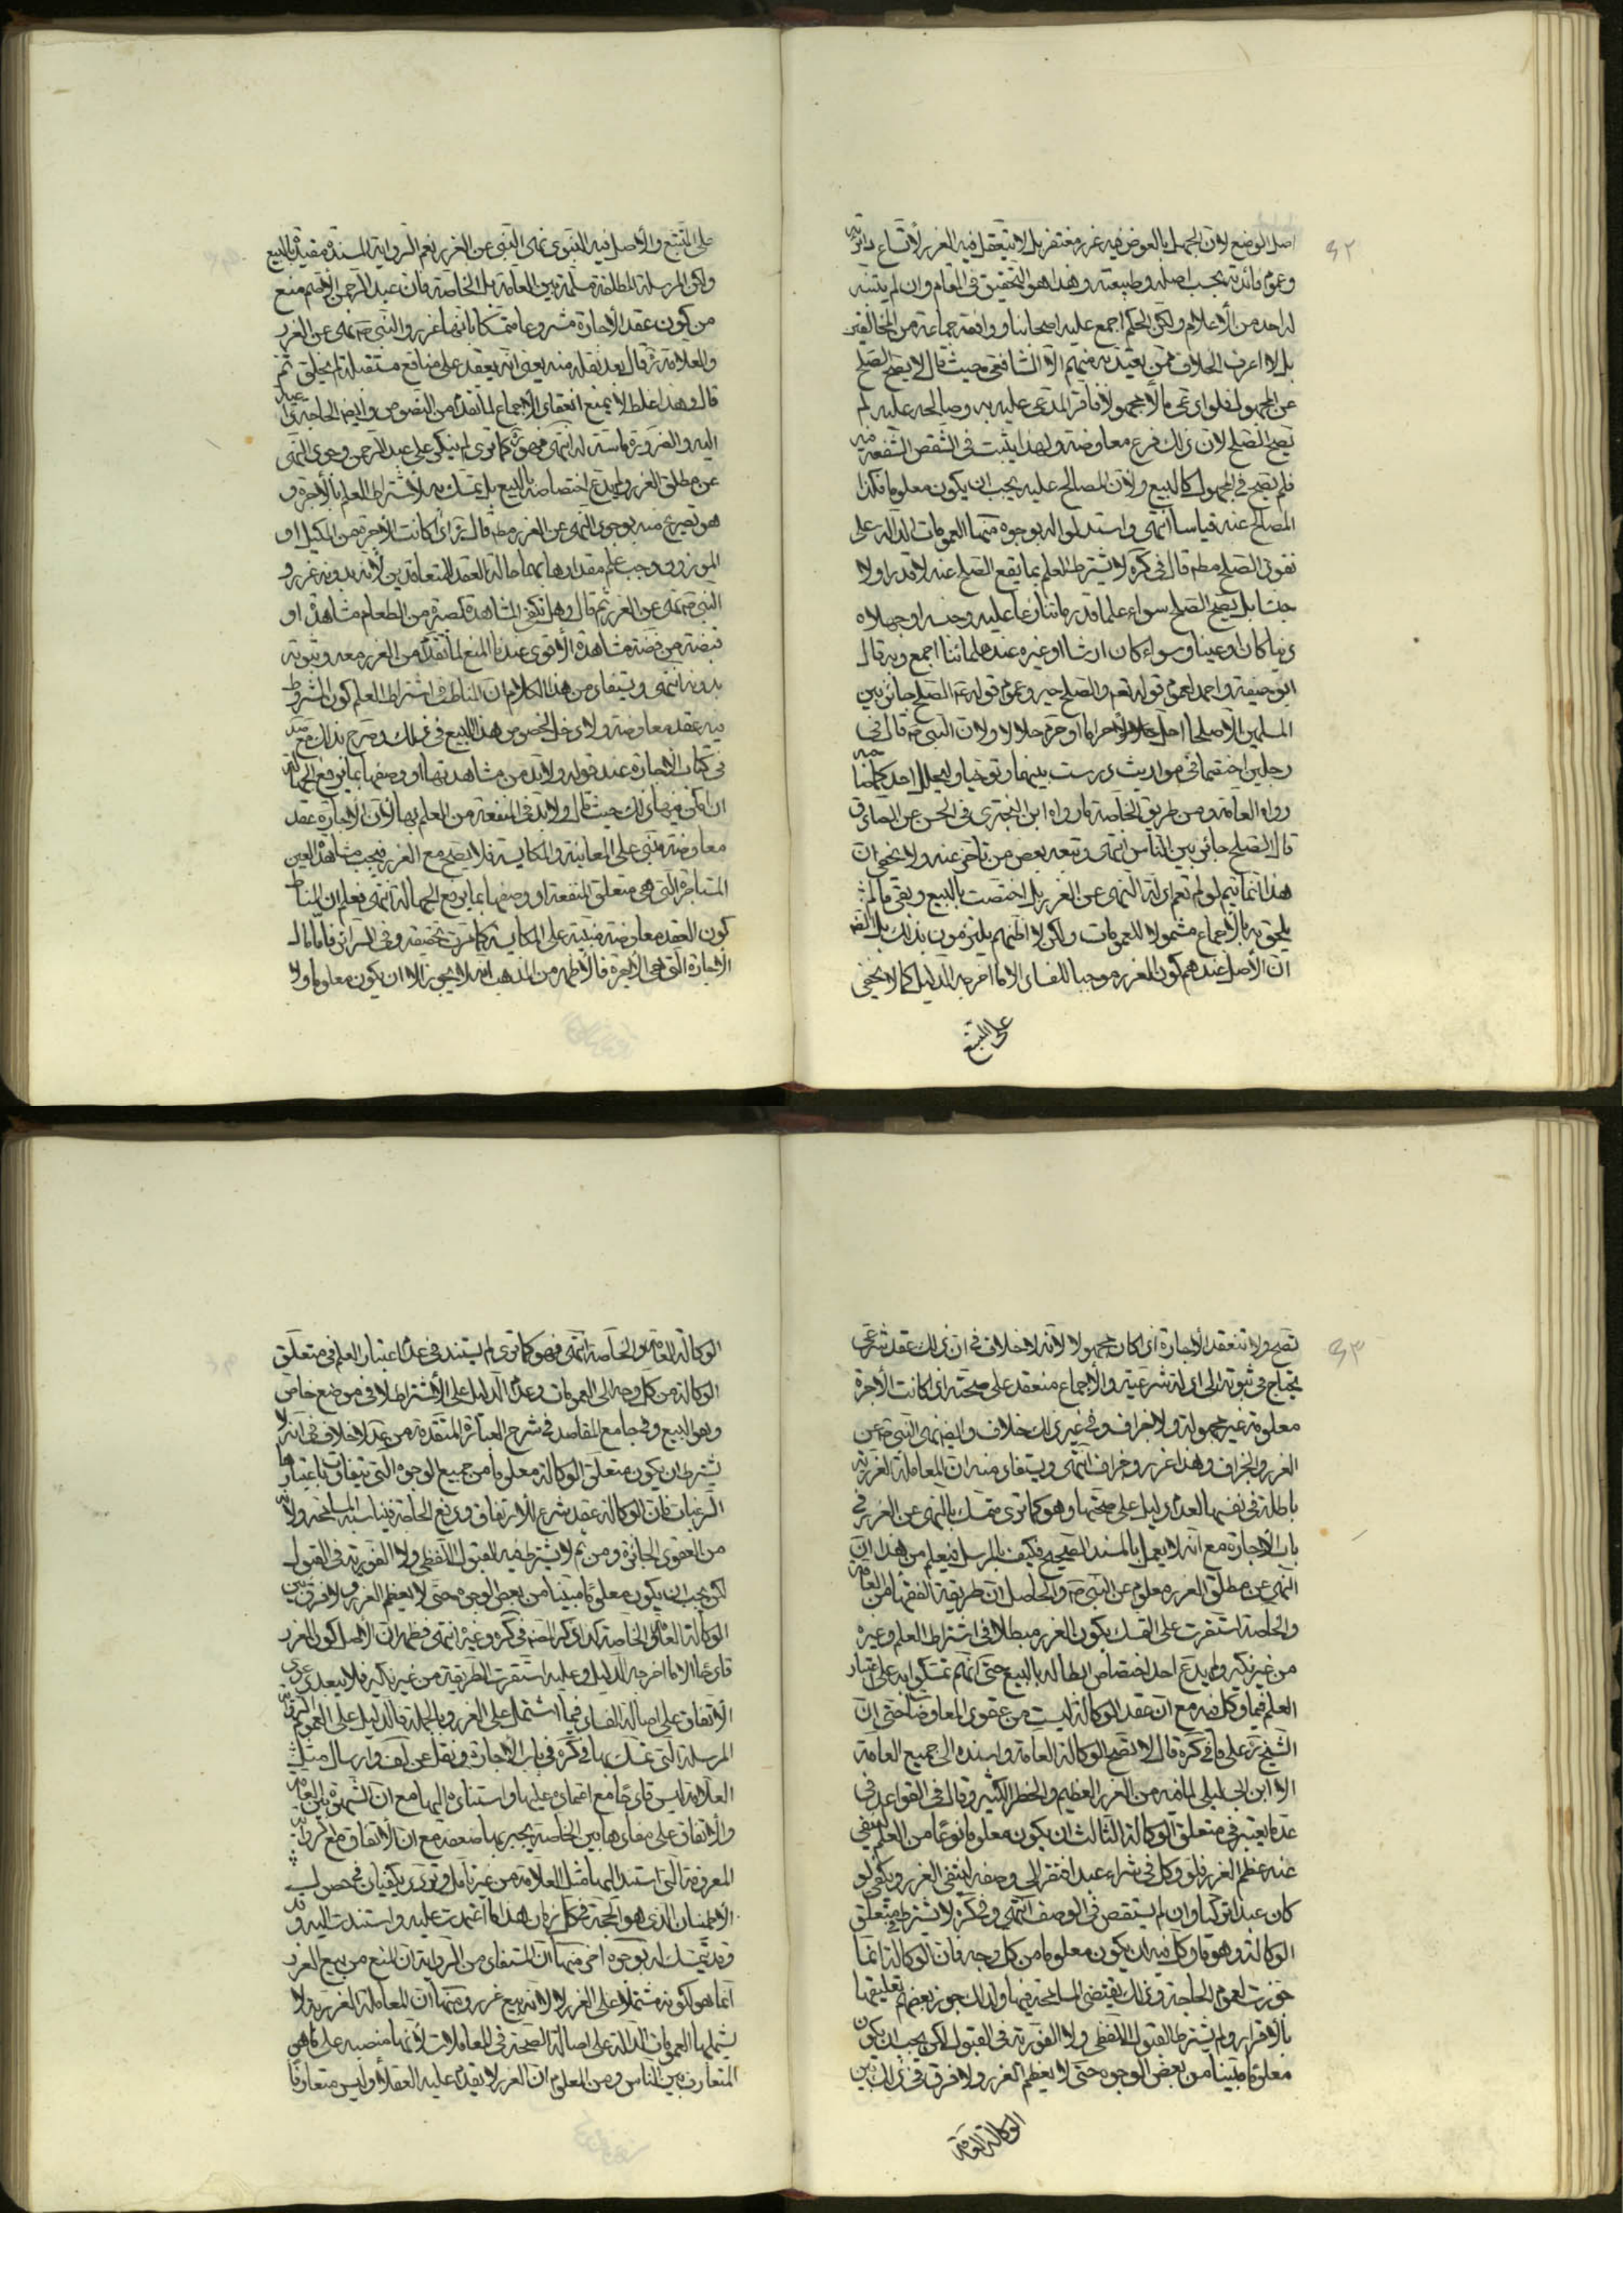 ٩٢
اصل الوضع لان الجهل بالعوض فيه غرر مغتفر بل لا يتعقل فيه الغرر لاتساع دائرته
وعموم فائدته بحسب اصله وطبيعته وهذا هو التحقيق في المقام وان لم يتنبه
له احد من الأعلام ولكن الحكم اجمع عليه اصحابنا ووافقه جماعة من المخالفين
بل لا اعرف الخلاف ممن يعتد به منهم الا الشافعي حيث قال لا يصح الصلح
عن المجهول فلو ادعى مالا مجهولا فاقر المدعى عليه به وصالحه عليه لم
يصح الصلح لان ذلك فرع معاوضة ولهذا يثبت في الشقص الشفعة فيه
فلم يصح في المجهول كالبيع ولان المصالح عليه يجب ان يكون معلوما فكذا
المصالح عنه قياسا انتهى واستدلوا له بوجوه منها العمومات الدالة على
نفوذ الصلح مطم قال في كره لا يشترط العلم بما يقع الصلح عنه لا قدرا ولا
جنسا بل يصح الصلح سواء علما قدر ما تنازعا عليه وجنسه او جهلاه
دينا كان او عينا وسواء كان ارثا او غيره عند علمائنا اجمع وبه قال
ابو حنيفة واحمد لعموم قوله تعم والصلح خير وعموم قوله عم الصلح جائز بين
المسلمين الا صلحا احل حراما او حرم حلالا ولان النبي ص قال في
رجلين اختصما في مواريث درست بينهما وتوخيا وليحلل احدكما صاحبه
رواه العامة ومن طريق الخاصة ما رواه ابن البختري في الحسن عن الصادق
قال الصلح جائز بين الناس انتهى وتبعه بعض من تاخر عنه ولا يخفى ان
هذا انما يتم لو لم تعم ادلة النهي عن الغرر بل اختصت بالبيع وبقى ما لم
يلحق به بالأجماع مشمولا للعمومات ولكن لا اظنهم يلتزمون بذلك بل
ان الأصل عندهم كون الغرر موجبا للفساد الا ما اخرجه الدليل كما لا يخفى
على التتبع
على التتبع والأصل فيه النبوي نهى النبي عن الغرر نعم الرواية المسندة مقيدة بالبيع
ولكن المرسلة المطلقة مسلمة بين العامة بل الخاصة فان عبد الرحمن الأصم منع
من كون عقد الأجارة مشروعا متمسكا بانها غرر والنبي ص نهى عن الغرر
والعلامة ره قال بعد نقله منه يعنى انه يعقد على منافع مستقبلة لم يخلق ثم
قال وهذا غلط لا يمنع انعقاد الأجماع لما تقدم من النصوص وايضا الحاجة داعية
اليه والضرورة ماسة له انتهى فهو ره كما ترى لم ينكر على عبد الرحمن دعوى النهي
عن مطلق الغرر ولم يدع اختصاصه بالبيع بل تمسك به لاشتراط العلم بالأجرة و
هو تصريح منه بوجود النهي عن الغرر مطم قال ره اذا كانت الأجرة من المكيل او
الموزون وجب علم مقدارها بهما حالة العقد للمتعاقدين لأنه بدونه غرر و
النبي ص نهى عن الغرر ثم قال وهل تكفي المشاهدة كصبرة من الطعام مشاهدة او
قبضة من فضة مشاهدة الأقوى عندنا المنع لما تقدم من الغرر معه وثبوته
بدونه انتهى ويستفاد من هذا الكلام ان المناط في اشتراط العلم كون المشروط
فيه عقد معاوضة ولا دخل لخصوص هذا البيع في ذلك وصرح بذلك مع
في كتاب الأجارة عند قوله ولابد من مشاهدتها او وصفها بما يرفع الجهالة
ان امكن فيها ذلك حيث قال ولابد في المنفعة من العلم بها لان الأجارة عقد
معاوضة مبنى على المغابنة والمكايسة فلا يصح مع الغرر فيجب مشاهدة العين
المستاجرة التي هي متعلق المنفعة او وصفها بما يرفع الجهالة انتهى فعلم ان المناط
كون العقد معاوضة مبنية على المكايسة كما مرت تحقيقه وفي السرائر فاما مال
الأجارة التي هي الأجرة فالأظهر من المذهب انه لا يجوز الا ان يكون معلوما ولا
٩٣
تصح ولا تنعقد الأجارة اذا كان مجهولا لانه لا خلاف في ان ذلك عقد شرعي
يحتاج في ثبوته الى ادلة شرعية والأجماع منعقد على صحته اذا كانت الأجرة
معلومة غير مجهولة ولا جزاف وفي غير ذلك خلاف وايضا نهى النبي ص عن
الغرر والجزاف وهذا غرر وجزاف انتهى ويستفاد منه ان المعاملة الغررية
باطلة في نفسها لعدم دليل على صحتها وهو كما ترى متمسك بالنهي عن الغرر في
باب الأجارة مع انه لا يعمل بالمسند الصحيح فكيف بالمرسل فيعلم من هذا ان
النهي عن مطلق الغرر معلوم عن النبي ص والحاصل ان طريقة الفقهاء من العامة
والخاصة استقرت على التمسك بكون الغرر مبطلا في اشتراط العلم وغيره
من غير نكير ولم يدع احد اختصاص ابطاله بالبيع حتى انهم تمسكوا به على اعتبار
العلم فيما وكل فيه مع ان عقد الوكالة ليس من عقود المعاوضات حتى ان
الشيخ ره على ما في كره قال لا تصح الوكالة العامة واسنده الى جميع العامة
الا ابن ابي ليلى لما فيه من الغرر العظيم والخطر الكثير وقال في القواعد في
عد ما يعتبر في متعلق الوكالة الثالث ان يكون معلوما نوعا من العلم لينتفي
عنه عظم الغرر فلو وكل في شراء عبد افتقر الى وصفه لينتفي الغرر ويكفي لو
كان عبدا تركيا وان لم يستقص في الوصف انتهى وفي كره لا يشترط في متعلق
الوكالة وهو ما وكل فيه ان يكون معلوما من كل وجه فان الوكالة انما
جوزت لعموم الحاجة وذلك يقتضى المسامحة فيها ولذلك جوز بعضهم تعليقها
بالأقرار ولم يشترط القبول اللفظي ولا الفورية في القبول لكن يجب ان يكون
معلوما مبينا من بعض الوجوه حتى لا يعظم الغرر ولا فرق في ذلك بين
الوكالة العامة
الوكالة العامة والخاصة انتهى فهو كما ترى لم يستند في عدم اعتبار العلم في متعلق
الوكالة من كل وجه الى العمومات وعدم الدليل على الأشتراط الا في موضع خاص
وهو البيع وفي جامع المقاصد في شرح العبارة المتقدمة من عد لا خلاف في انه لا
يشترط ان يكون متعلق الوكالة معلوما من جميع الوجوه التي يتفاوت باعتبارها
الرغبات فان الوكالة عقد شرع للارتفاق ودفع الحاجة فيناسبه المسامحة ولانه
من العقود الجائزة ومن ثم لا يشترط فيه القبول اللفظي ولا الفورية في القبول
لكن يجب ان يكون معلوما مبينا من بعض الوجوه حتى لا يعظم الغرر ولا فرق بين
الوكالة العامة والخاصة كذا ذكر المصنف في كره وغيره انتهى فظهر ان الأصل كون الغرر
قادحا الا ما اخرجه الدليل وعليه استقرت الطريقة من غير نكير فلا يبعد دعوى
الأتفاق على اصالة الفساد فيما اشتمل على الغرر وبالجملة فالدليل على العموم
المرسلة التي تمسك بها في كره في باب الأجارة ونقل عن لف وارسال مثل
العلامة ليس قادحا مع اعتماده عليها واستناده اليها مع ان الشهرة بين العامة
والأتفاق على مفادها بين الخاصة يجبر بها ضعفه مع ان الأتفاق مع
المعروفة التي استند اليها مثل العلامة من غير تامل وتردد يكفيان في حصول
الأطمئنان الذي هو الحجة في كل زمان هذا ما اعتمدت عليه واستندت اليه و
قد يتمسك له بوجوه اخر منها ان المستفاد من الرواية ان المنع من بيع الغرر
انما هو لكونه مشتملا على الغرر لا لانه بيع غرر ومنها ان المعاملة الغررية لا
يشملها العمومات الدالة على اصالة الصحة في المعاملات لأنها منصبة على ما هو
المتعارف بين الناس ومن المعلوم ان الغرر لا يقدم عليه العقلاء وليس متعارفا